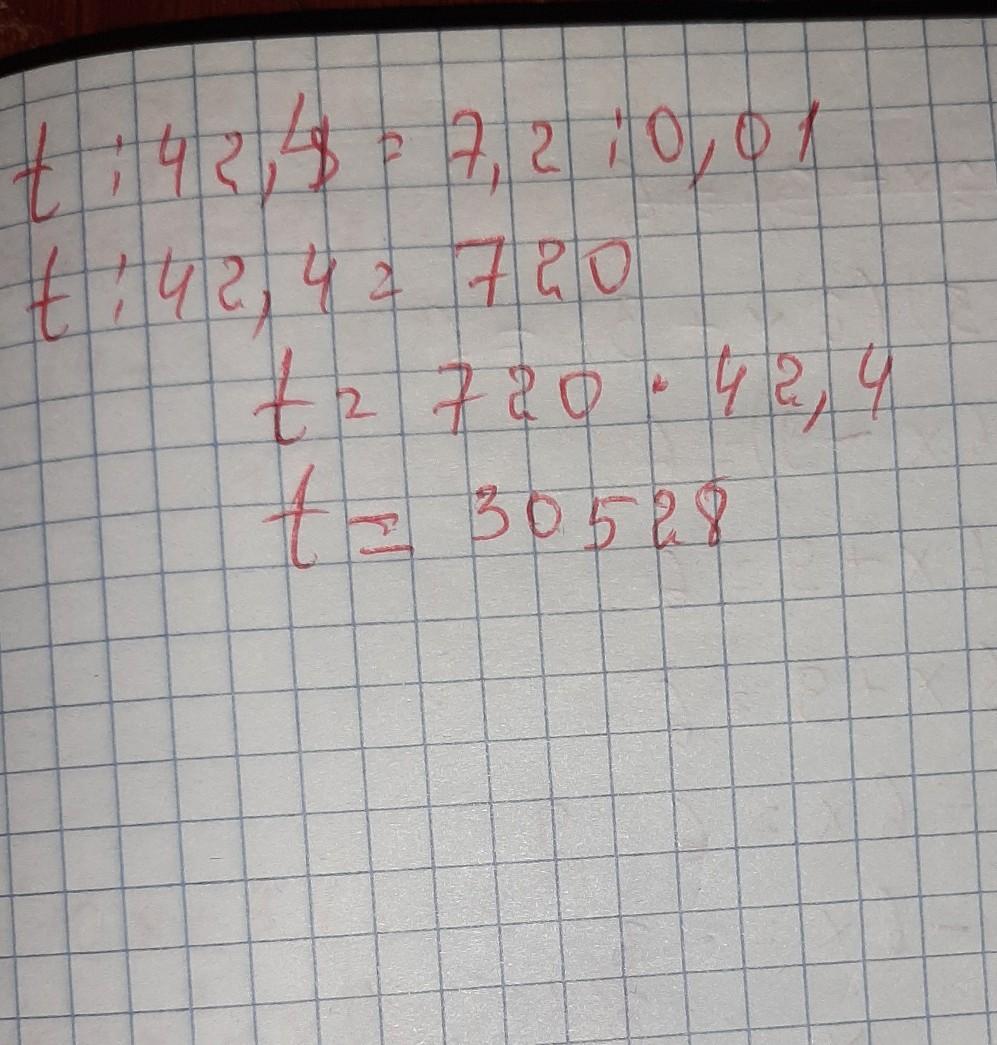 t : 42,4 = 7,2 : 0,01
t : 42,4 = 720
t = 720 · 42,4
t = 30528